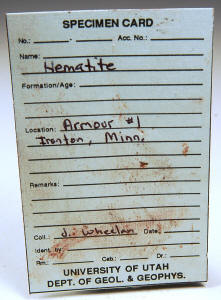 SPECIMEN CARD
No.: Acc. No.:
Name: Hematite
Formation/Age:
Location: Armour #1
Ironton, Minn.
Remarks:
Coll.: J. Wheelan Date:
Ident. by
Rm.: Cab.: Dr.:
UNIVERSITY OF UTAH
DEPT. OF GEOL. & GEOPHYS.